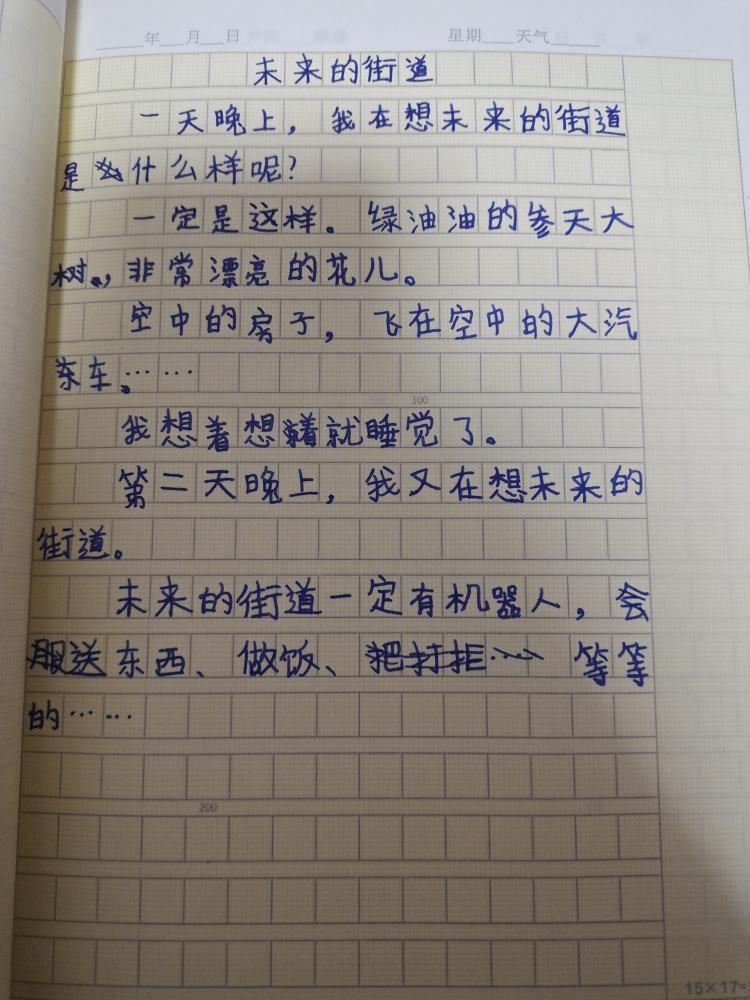 年 月 日 星期 天气
未来的街道
一天晚上，我在想未来的街道
是什么样呢？
一定是这样。绿油油的参天大
树，非常漂亮的花儿。
空中的房子，飞在空中的大汽
车。……
100
我想着想着就睡觉了。
第二天晚上，我又在想未来的
街道。
未来的街道一定有机器人，会
服送东西、做饭、等等
的……
200
15×17=